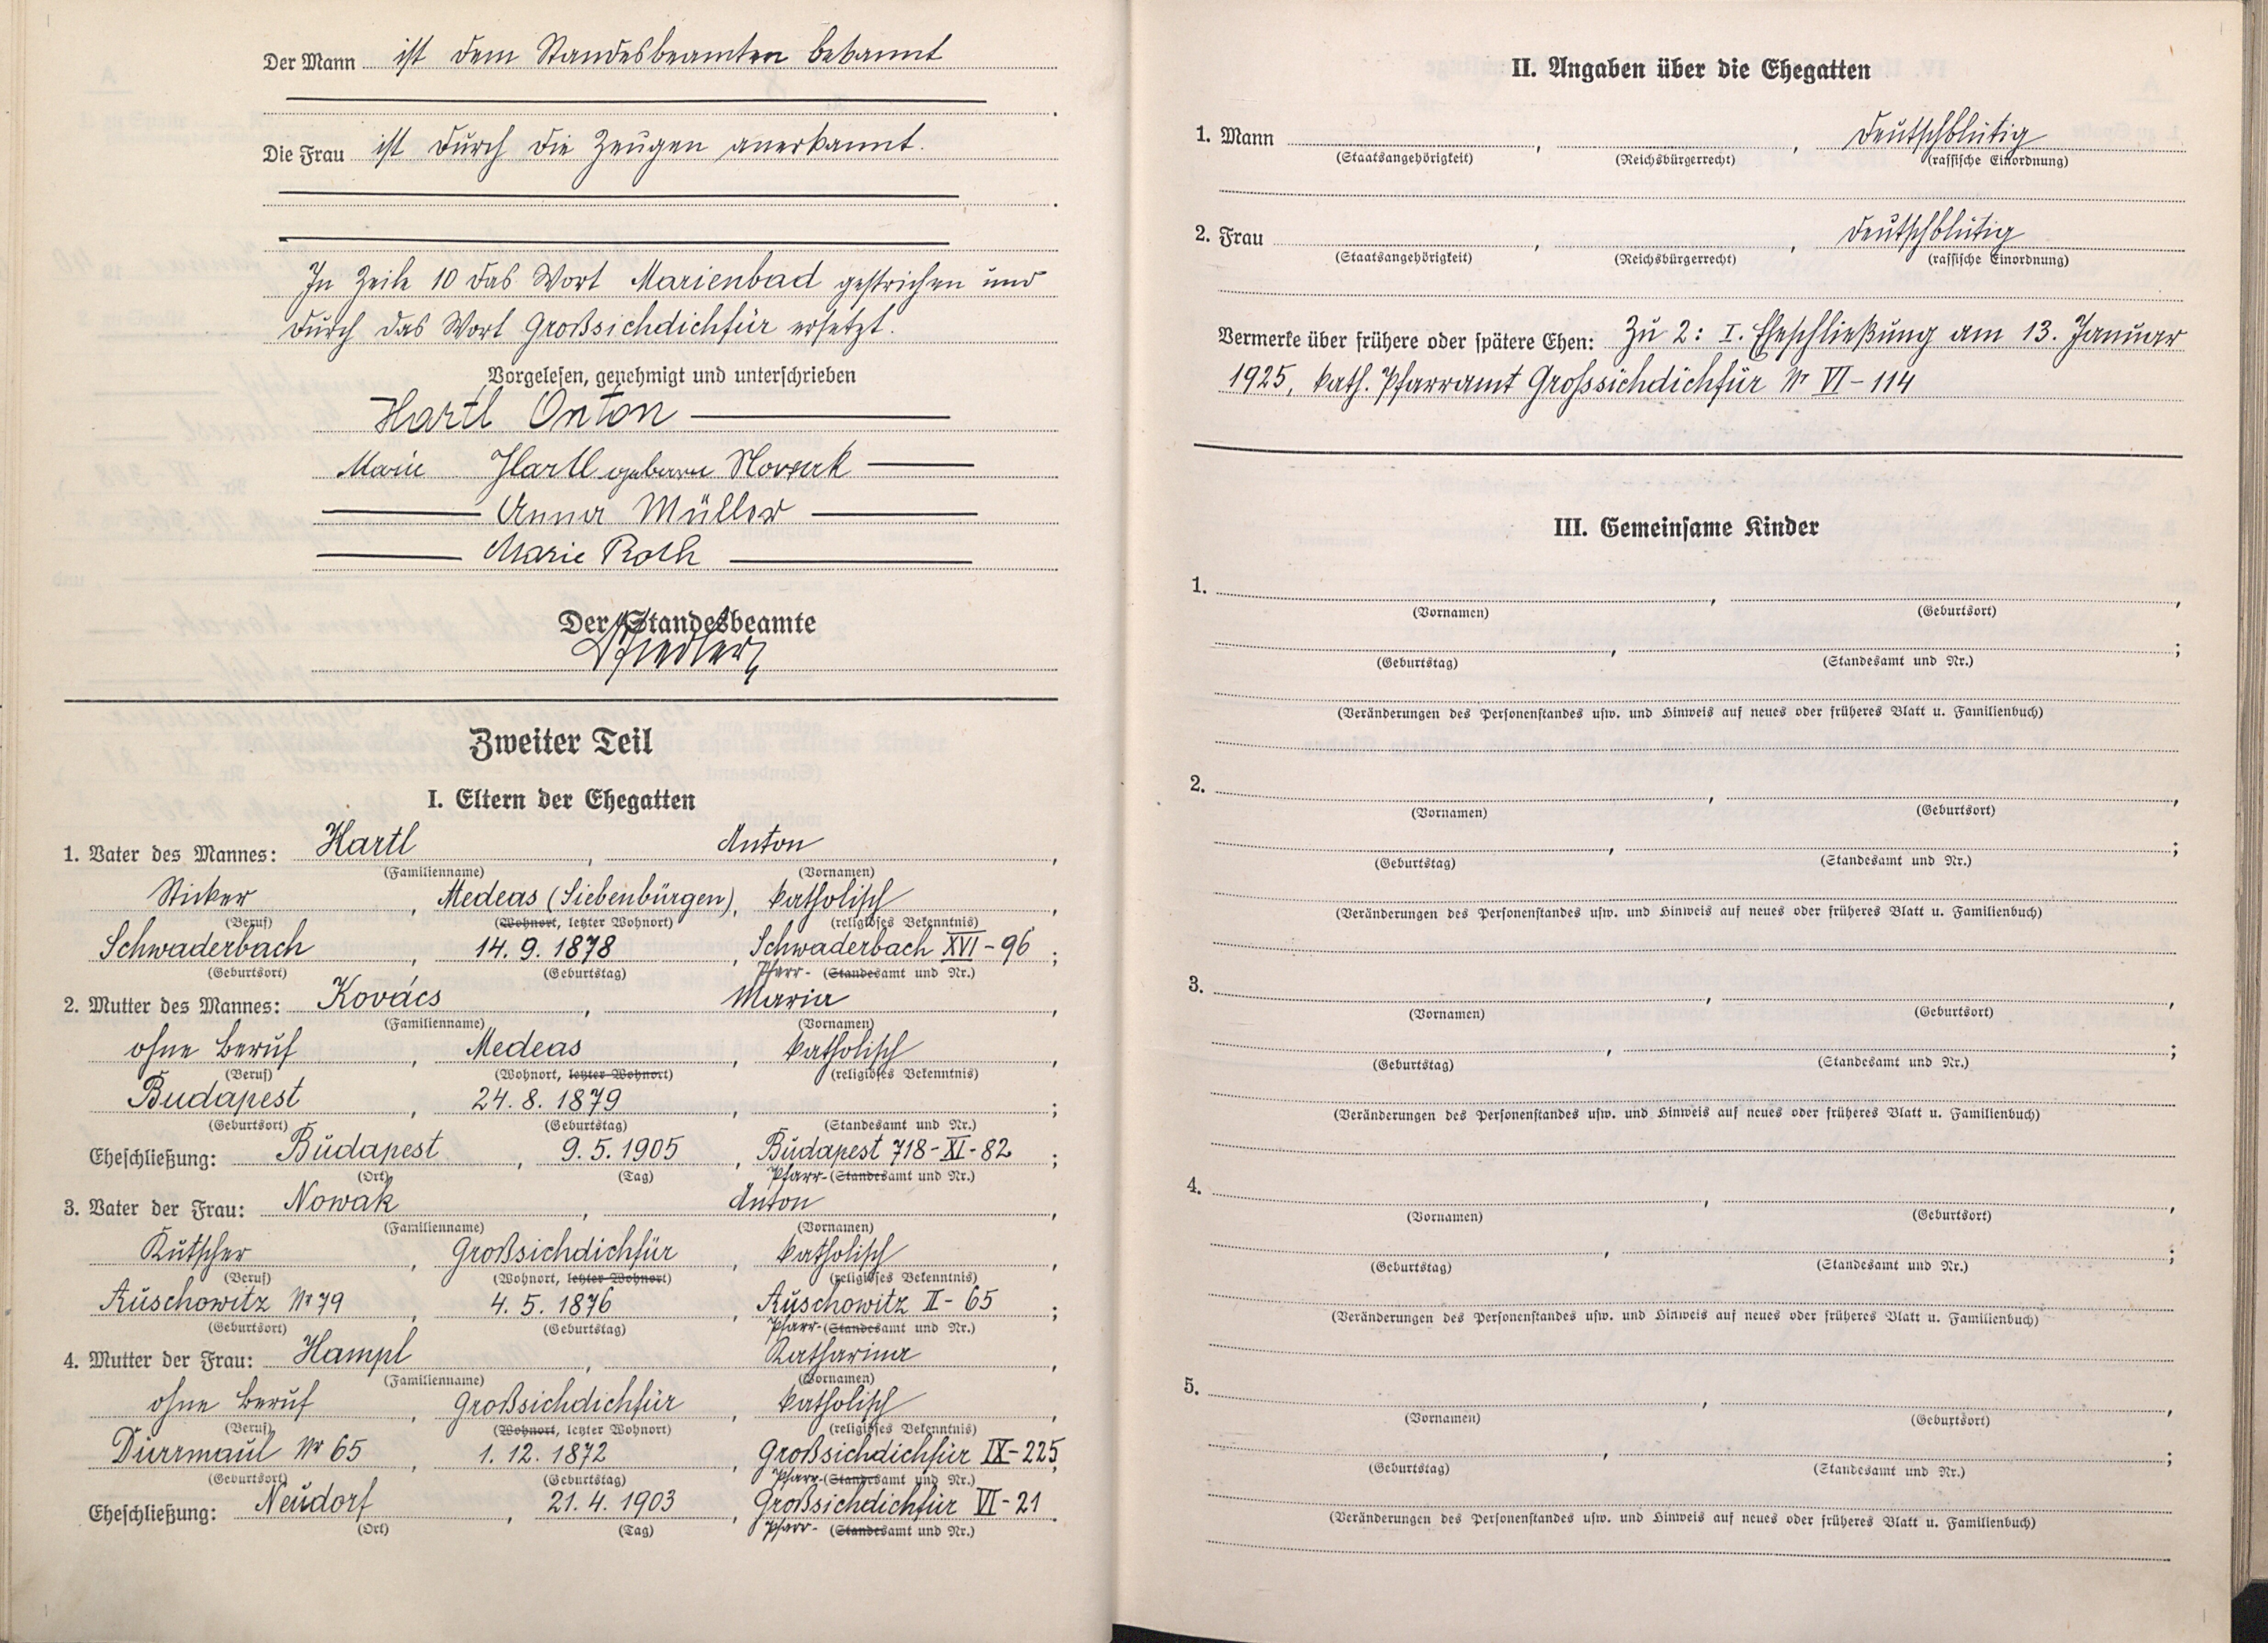 Der Mann ist dem Standesbeamten bekannt
Die Frau ist durch die Zeugen anerkannt.
In Zeile 10 das Wort Marienbad gestrichen und
durch das Wort Großsichdichfür ersetzt.
Vorgelesen, genehmigt und unterschrieben
Hartl Anton
Marie Hartl geborene Nowak
Anna Müller
Marie Roth
Der Standesbeamte
Zweiter Teil
I. Eltern der Ehegatten
1. Vater des Mannes: Hartl, Anton,
(Familienname) (Vornamen)
Sticker, Medeas (Siebenbürgen), katholisch,
(Beruf) (Wohnort, letzter Wohnort) (religiöses Bekenntnis)
Schwaderbach, 14. 9. 1878, Schwaderbach XVI-96;
(Geburtsort) (Geburtstag) Pfarr- (Standesamt und Nr.)
2. Mutter des Mannes: Kovács, Maria,
(Familienname) (Vornamen)
ohne Beruf, Medeas, katholisch,
(Beruf) (Wohnort, letzter Wohnort) (religiöses Bekenntnis)
Budapest, 24. 8. 1879, ;
(Geburtsort) (Geburtstag) (Standesamt und Nr.)
Eheschließung: Budapest, 9. 5. 1905, Budapest 718-XI-82;
(Ort) (Tag) Pfarr- (Standesamt und Nr.)
3. Vater der Frau: Nowak, Anton,
(Familienname) (Vornamen)
Kutscher, Großsichdichfür, katholisch,
(Beruf) (Wohnort, letzter Wohnort) (religiöses Bekenntnis)
Auschowitz Nr 79, 4. 5. 1876, Auschowitz II-65;
(Geburtsort) (Geburtstag) Pfarr- (Standesamt und Nr.)
4. Mutter der Frau: Hampl, Katharina,
(Familienname) (Vornamen)
ohne Beruf, Großsichdichfür, katholisch,
(Beruf) (Wohnort, letzter Wohnort) (religiöses Bekenntnis)
Dürrmaul Nr 65, 1. 12. 1872, Großsichdichfür IX-225;
(Geburtsort) (Geburtstag) Pfarr- (Standesamt und Nr.)
Eheschließung: Neudorf, 21. 4. 1903, Großsichdichfür VI-21.
(Ort) (Tag) Pfarr- (Standesamt und Nr.)
II. Angaben über die Ehegatten
1. Mann , , deutschblütig
(Staatsangehörigkeit) (Reichsbürgerrecht) (rassische Einordnung)
2. Frau , , deutschblütig
(Staatsangehörigkeit) (Reichsbürgerrecht) (rassische Einordnung)
Vermerke über frühere oder spätere Ehen: Zu 2: I. Eheschließung am 13. Januar
1925, kath. Pfarramt Grosssichdichfür Nr VI-114
III. Gemeinsame Kinder
1. , ,
(Vornamen) (Geburtsort)
, ;
(Geburtstag) (Standesamt und Nr.)
(Veränderungen des Personenstandes usw. und Hinweis auf neues oder früheres Blatt u. Familienbuch)
2. , ,
(Vornamen) (Geburtsort)
, ;
(Geburtstag) (Standesamt und Nr.)
(Veränderungen des Personenstandes usw. und Hinweis auf neues oder früheres Blatt u. Familienbuch)
3. , ,
(Vornamen) (Geburtsort)
, ;
(Geburtstag) (Standesamt und Nr.)
(Veränderungen des Personenstandes usw. und Hinweis auf neues oder früheres Blatt u. Familienbuch)
4. , ,
(Vornamen) (Geburtsort)
, ;
(Geburtstag) (Standesamt und Nr.)
(Veränderungen des Personenstandes usw. und Hinweis auf neues oder früheres Blatt u. Familienbuch)
5. , ,
(Vornamen) (Geburtsort)
, ;
(Geburtstag) (Standesamt und Nr.)
(Veränderungen des Personenstandes usw. und Hinweis auf neues oder früheres Blatt u. Familienbuch)